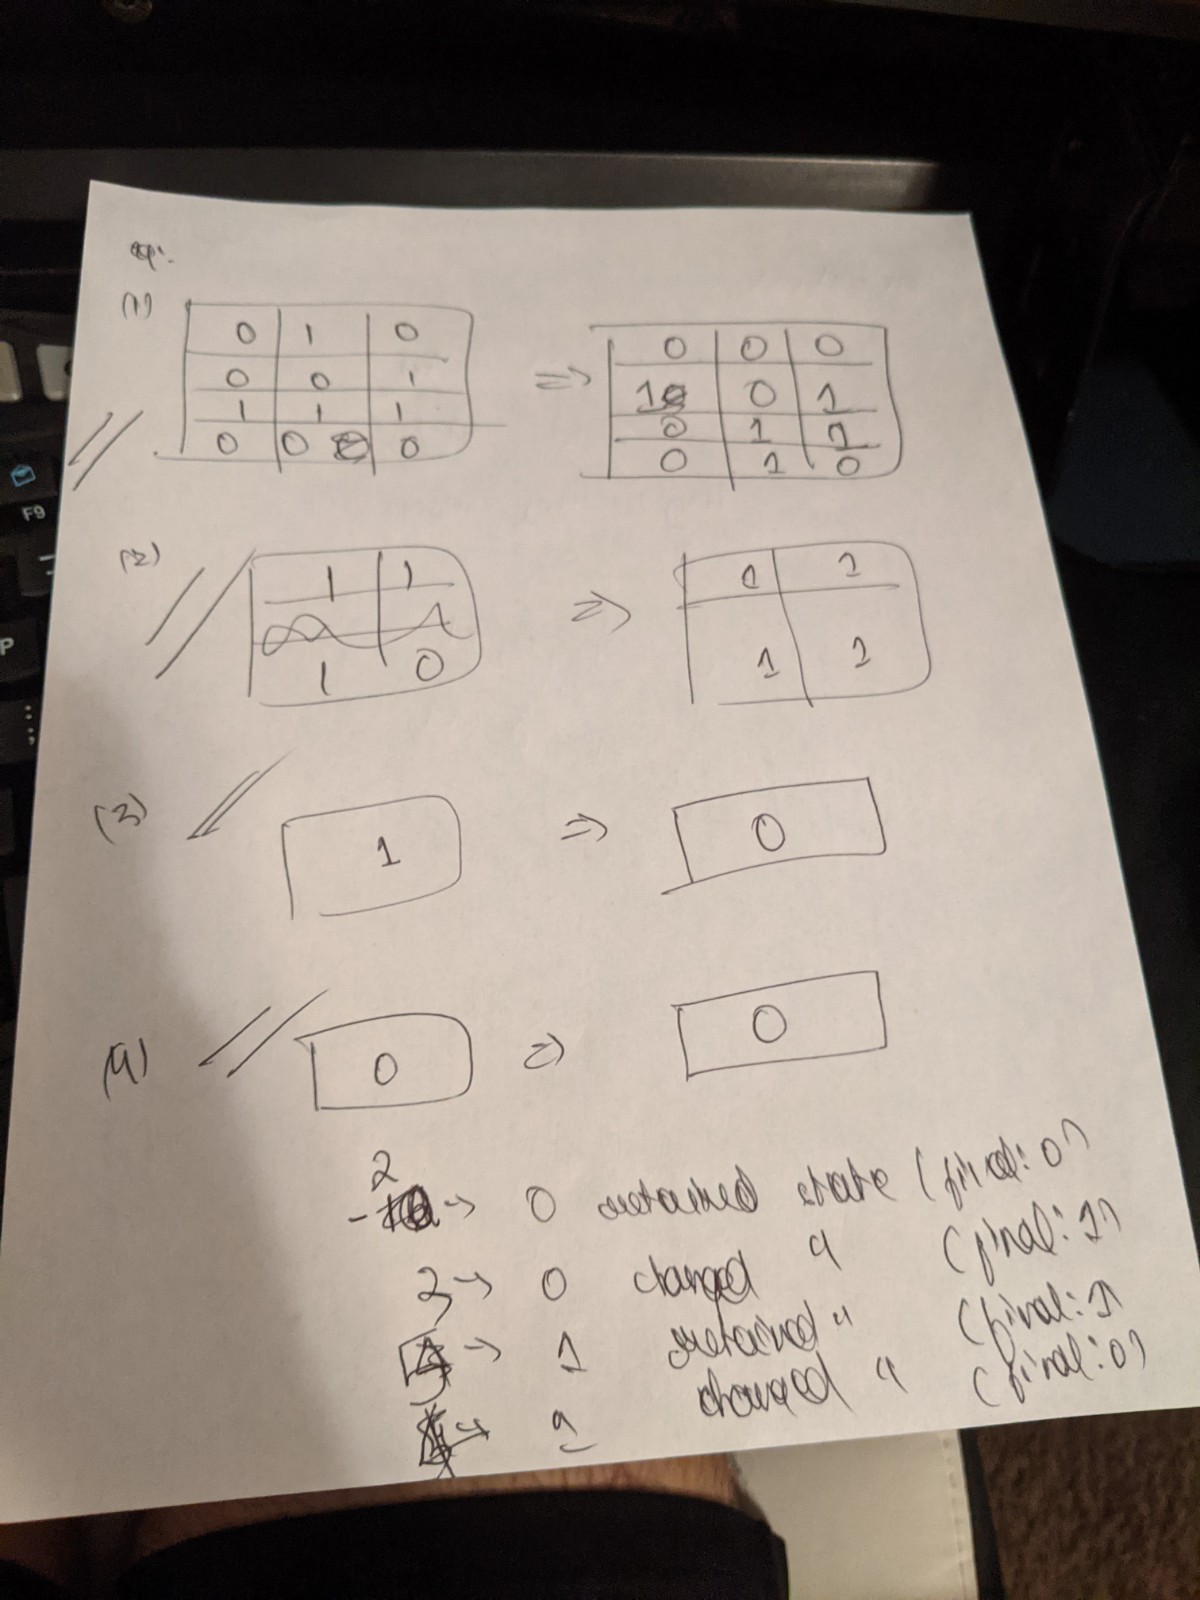 (1)
0 1 0 => 0 0 0
0 0 1 1 0 1
1 1 1 0 1 1
0 0 0 0 1 0
(2)
1 1 => 1 1
1 0 1 1
(3) 1 => 0
(4) 0 => 0
2 -> 0 retained state (final: 0)
3 -> 0 changed " (final: 1)
-> 1 retained " (final: 1)
changed " (final: 0)
F9
P